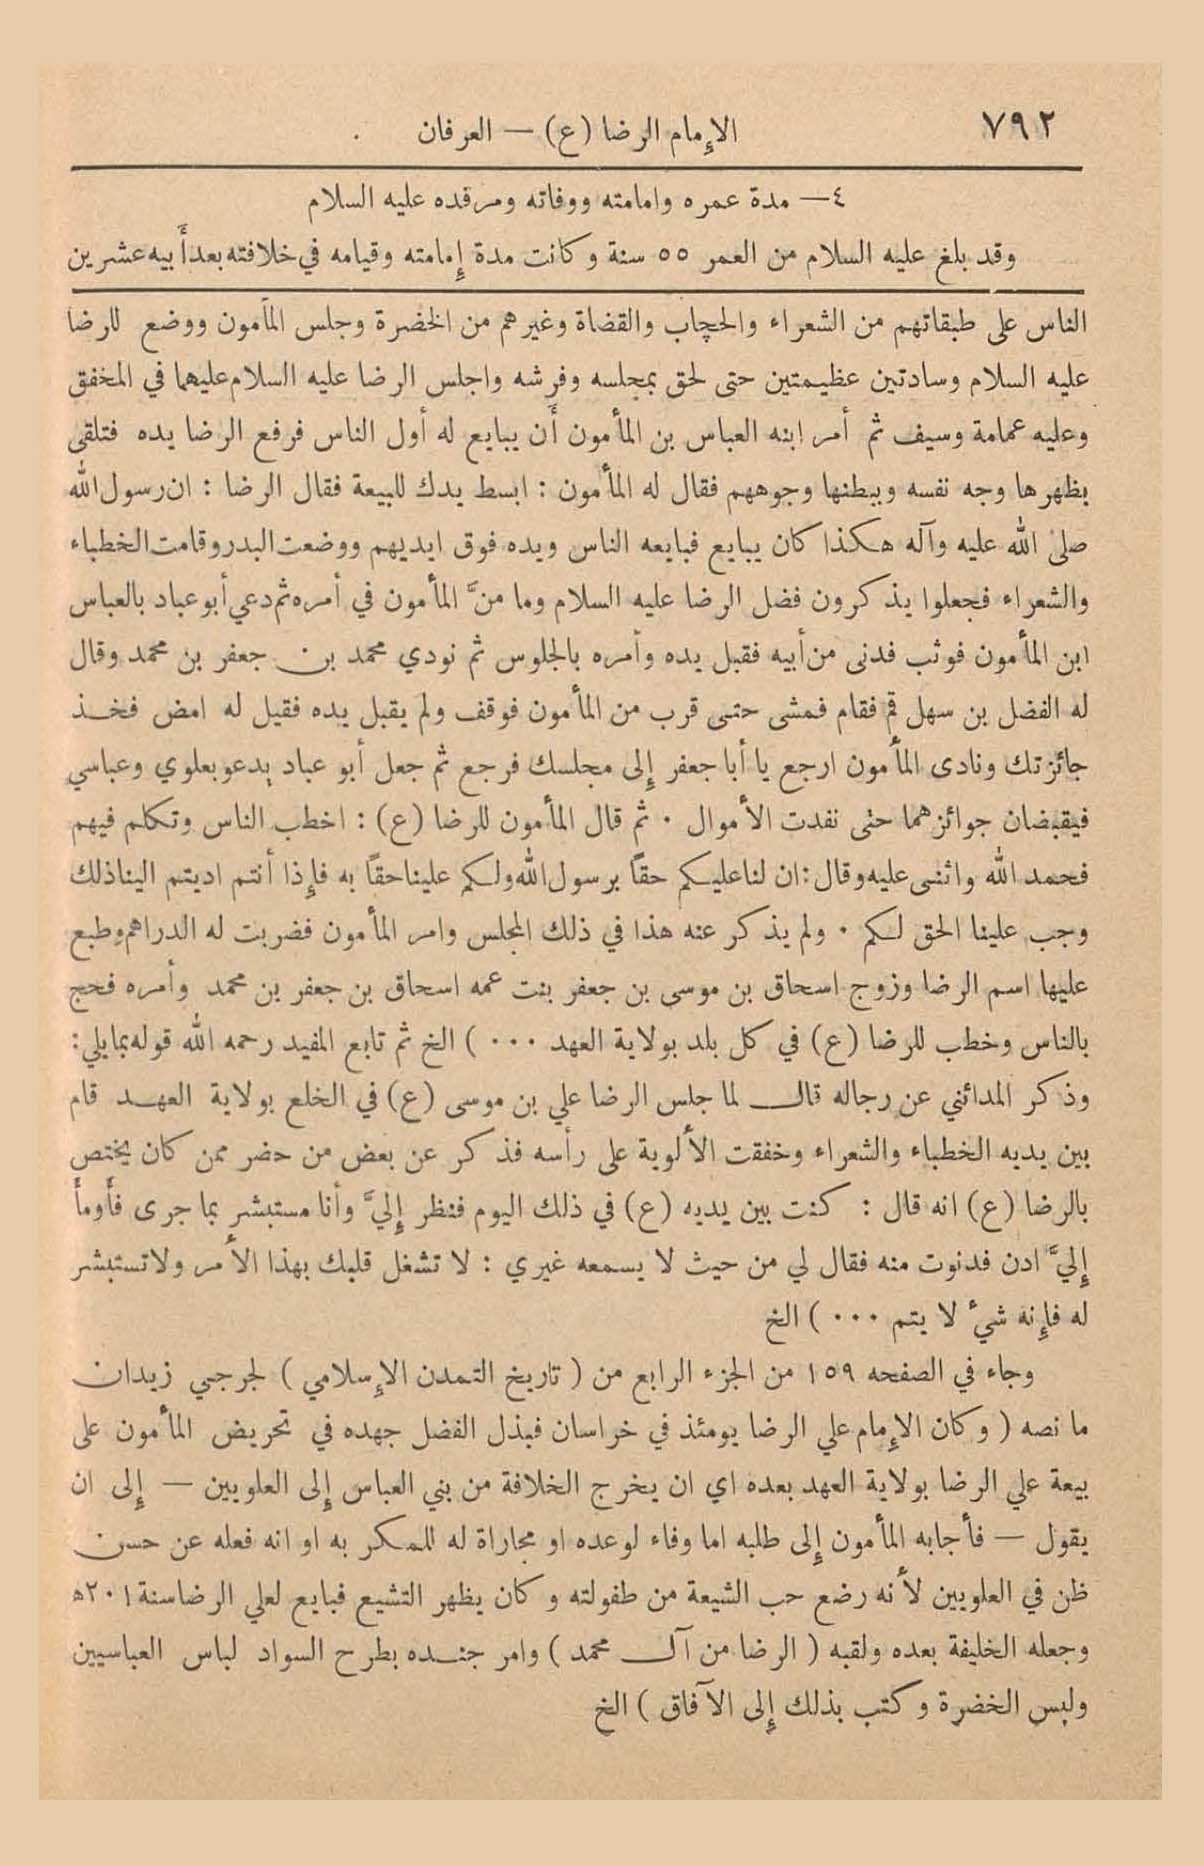 ٧٩٢
الإمام الرضا (ع) — العرفان
٤ — مدة عمره وامامته ووفاته ومرقده عليه السلام
وقد بلغ عليه السلام من العمر ٥٥ سنة وكانت مدة إمامته وقيامه في خلافته بعد أبيه عشرين
الناس على طبقاتهم من الشعراء والحجاب والقضاة وغيرهم من الخضرة وجلس المأمون ووضع للرضا
عليه السلام وسادتين عظيمتين حتى لحق بمجلسه وفرشه واجلس الرضا عليه السلام عليهما في المخفق
وعليه عمامة وسيف ثم أمر ابنه العباس بن المأمون أن يبايع له أول الناس فرفع الرضا يده فتلقى
بظهرها وجه نفسه وببطنها وجوههم فقال له المأمون : ابسط يدك للبيعة فقال الرضا : ان رسول الله
صلى الله عليه وآله هكذا كان يبايع فبايعه الناس ويده فوق ايديهم ووضعت البدر وقامت الخطباء
والشعراء فجعلوا يذكرون فضل الرضا عليه السلام وما منَّ المأمون في أمره ثم دعي أبو عباد بالعباس
ابن المأمون فوثب فدنى من أبيه فقبل يده وأمره بالجلوس ثم نودي محمد بن جعفر بن محمد وقال
له الفضل بن سهل قم فقام فمشى حتى قرب من المأمون فوقف ولم يقبل يده فقيل له امض فخذ
جائزتك ونادى المأمون ارجع يا أبا جعفر إلى مجلسك فرجع ثم جعل أبو عباد يدعو بعلوي وعباسي
فيقبضان جوائزهما حتى نفدت الأموال ٠ ثم قال المأمون للرضا (ع) : اخطب الناس وتكلم فيهم
فحمد الله واثنى عليه وقال : ان لنا عليكم حقاً برسول الله ولكم علينا حقاً به فإذا أنتم اديتم الينا ذلك
وجب علينا الحق لكم ٠ ولم يذكر عنه هذا في ذلك المجلس وامر المأمون فضربت له الدراهم وطبع
عليها اسم الرضا وزوج اسحاق بن موسى بن جعفر بنت عمه اسحاق بن جعفر بن محمد وأمره فحج
بالناس وخطب للرضا (ع) في كل بلد بولاية العهد ٠٠٠ ) الخ ثم تابع المفيد رحمه الله قوله بمايلي :
وذكر المدائني عن رجاله قال لما جلس الرضا علي بن موسى (ع) في الخلع بولاية العهد قام
بين يديه الخطباء والشعراء وخفقت الألوية على رأسه فذكر عن بعض من حضر ممن كان يختص
بالرضا (ع) انه قال : كنت بين يديه (ع) في ذلك اليوم فنظر إليَّ وأنا مستبشر بما جرى فأومأ
إليَّ ادن فدنوت منه فقال لي من حيث لا يسمعه غيري : لا تشغل قلبك بهذا الأمر ولا تستبشر
له فإنه شيء لا يتم ٠٠٠ ) الخ
وجاء في الصفحه ١٥٩ من الجزء الرابع من ( تاريخ التمدن الإسلامي ) لجرجي زيدان
ما نصه ( وكان الإمام علي الرضا يومئذ في خراسان فبذل الفضل جهده في تحريض المأمون على
بيعة علي الرضا بولاية العهد بعده اي ان يخرج الخلافة من بني العباس إلى العلويين — إلى ان
يقول — فأجابه المأمون إلى طلبه اما وفاء لوعده او مجاراة له للمكر به او انه فعله عن حسن
ظن في العلويين لأنه رضع حب الشيعة من طفولته وكان يظهر التشيع فبايع لعلي الرضا سنة ٢٠١ه
وجعله الخليفة بعده ولقبه ( الرضا من آل محمد ) وامر جنده بطرح السواد لباس العباسيين
ولبس الخضرة وكتب بذلك إلى الآفاق ) الخ